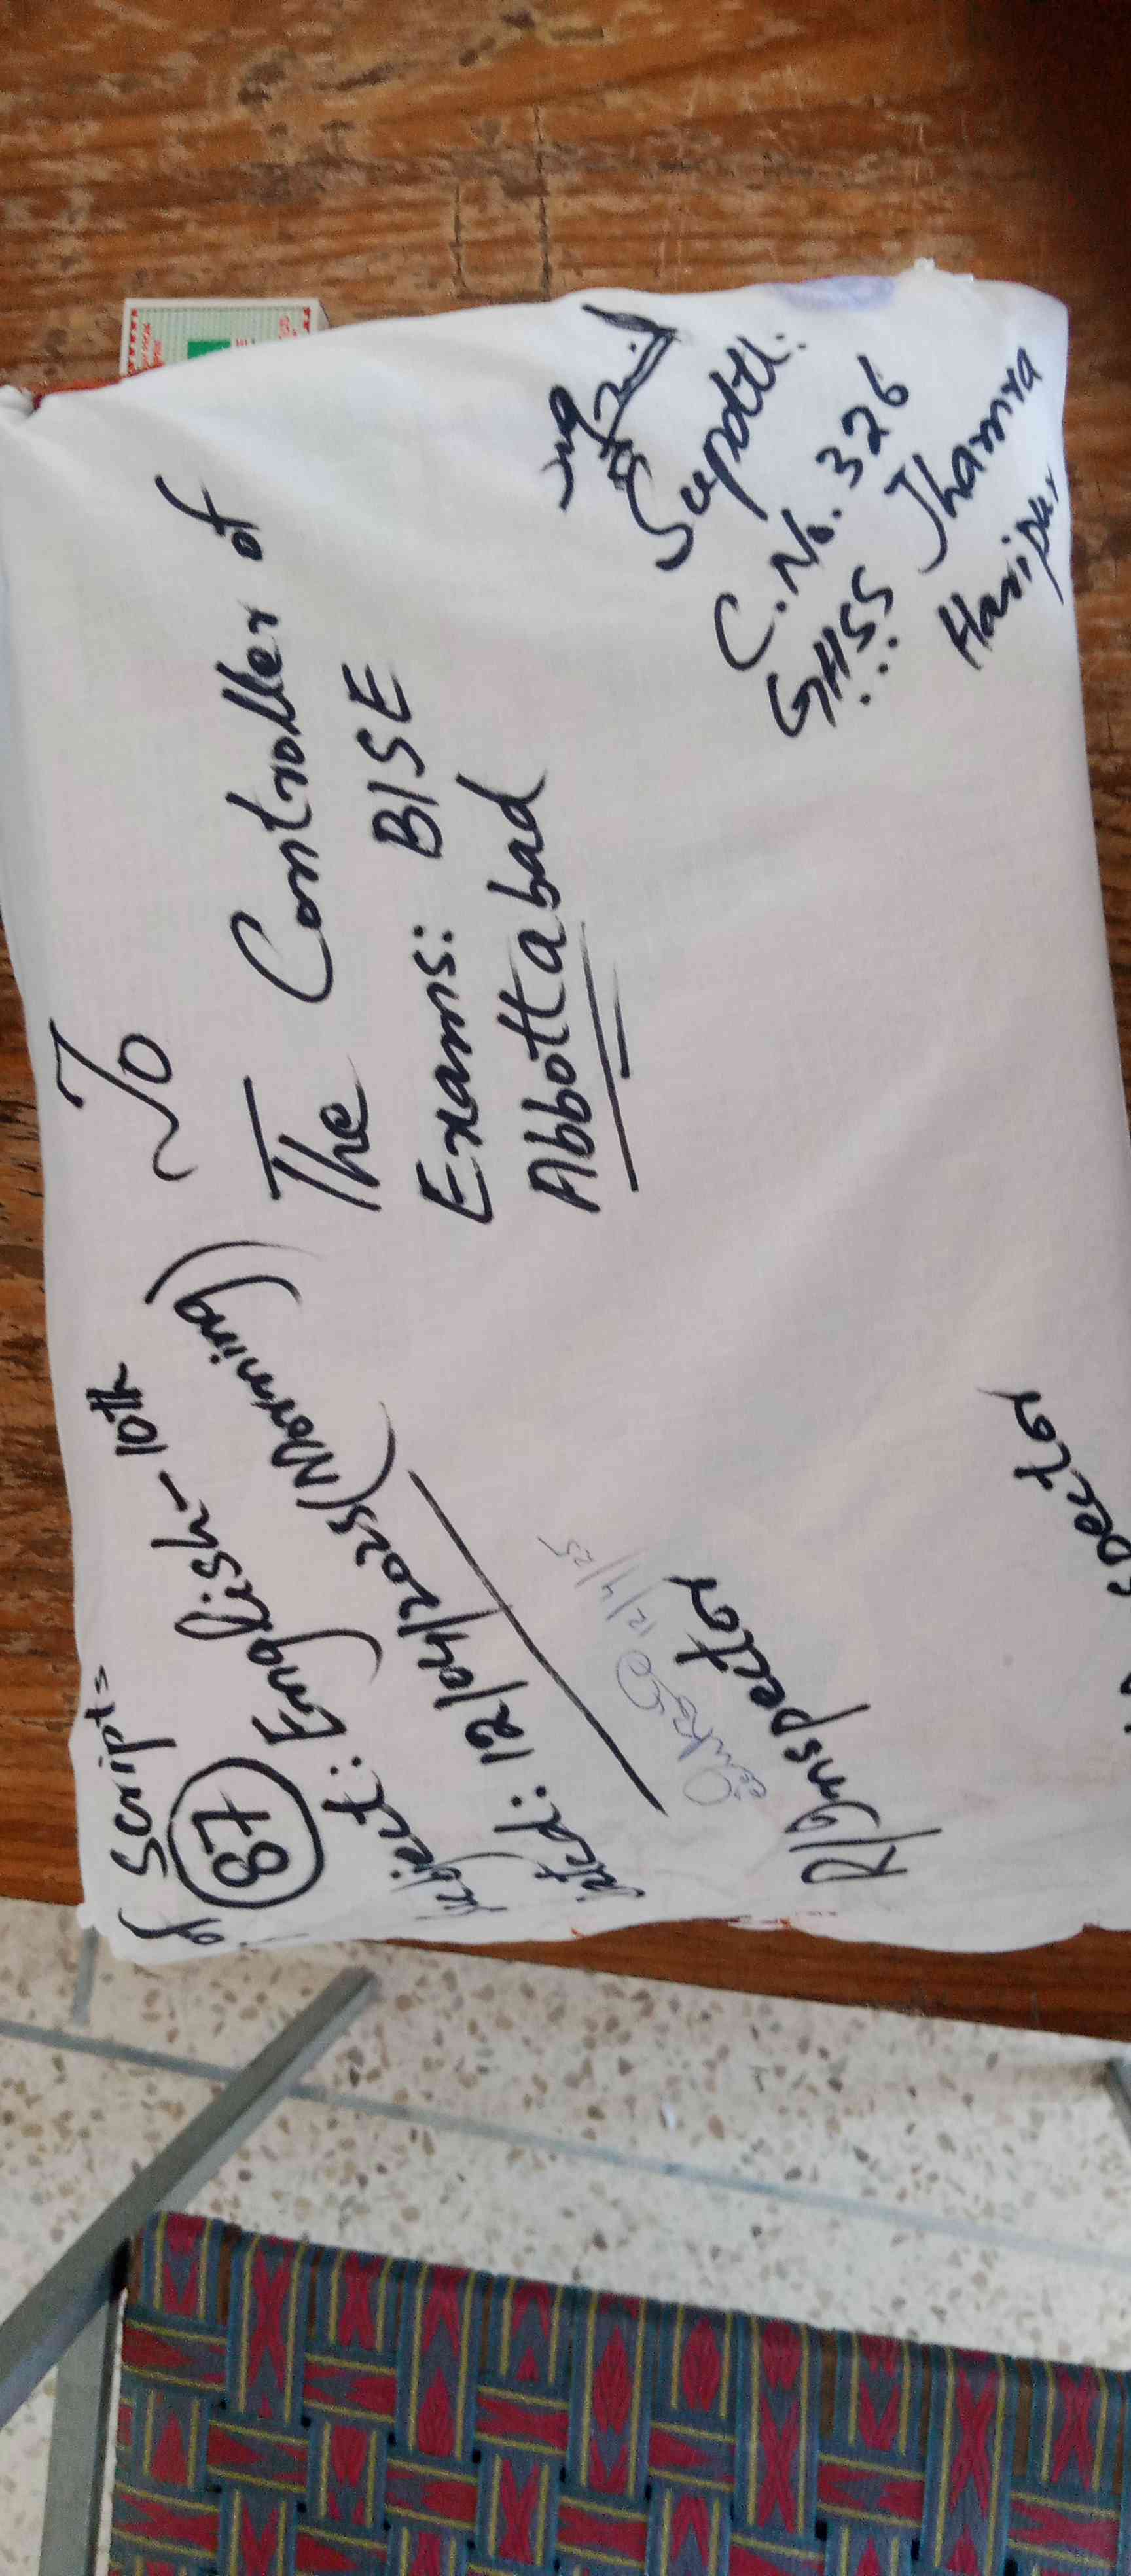 of Scripts
87
Subject: English-10th
Dated: 12/04/2025 (Morning)
To
The Controller of
Exams: BISE
Abbottabad
12/4/25
R/Inspector
Supdtt:
C.No. 326
GHSS Jhamra
Haripur